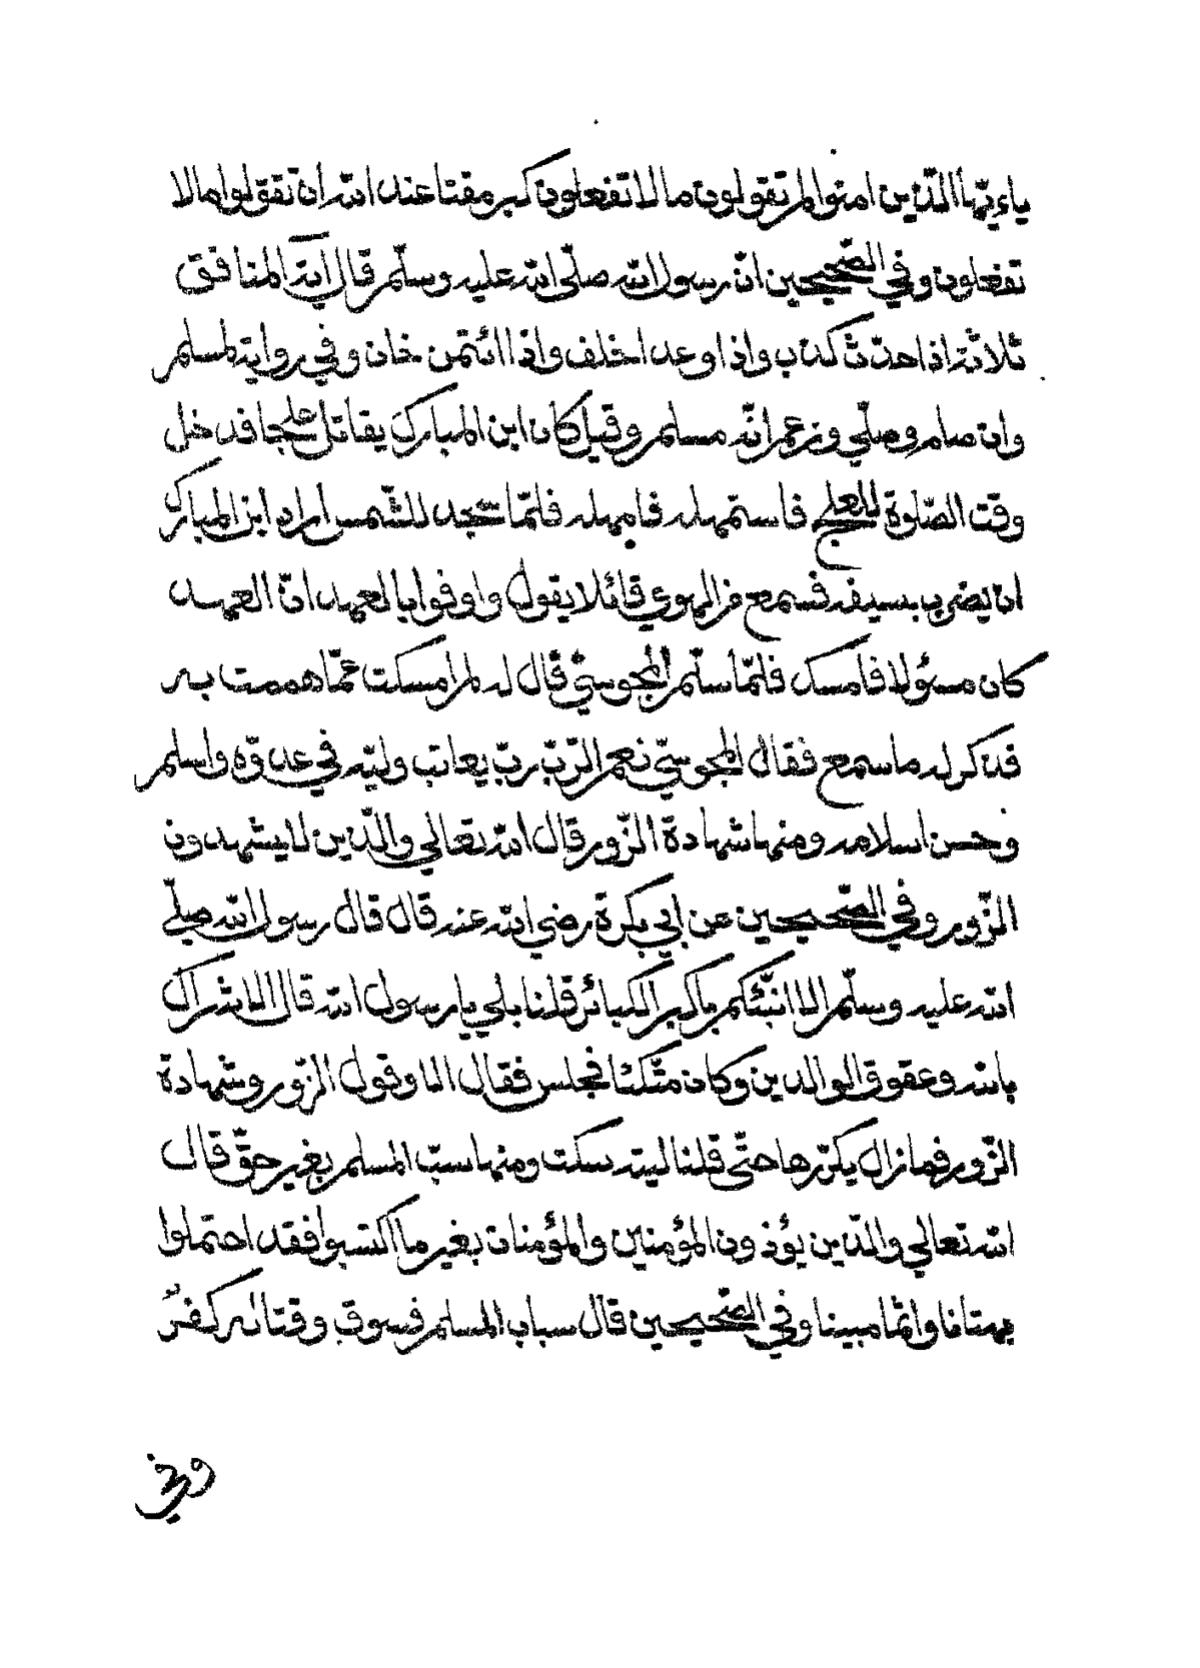 ياءيّها الّذين امنوا لم تقولون ما لا تفعلون كبر مقتا عند الله ان تقولوا ما لا
تفعلون وفي الصّحيحين انّ رسول الله صلّى الله عليه وسلّم قال آية المنافق
ثلاثة اذا حدّث كذب واذا وعد اخلف واذا ائتمن خان وفي رواية لمسلم
وان صام وصلّي وزعم انّه مسلم وقيل كان ابن المبارك يقاتل علجا فدخل
وقت الصّلوة للعلج فاستمهله فامهله فلمّا سجد للشّمس اراد ابن المبارك
ان يضرب بسيفه فسمع من الهوي قائلا يقول واوفوا بالعهد انّ العهد
كان مسئولا فامسك فلمّا سلّم المجوسيّ قال له لم امسكت عمّا هممت به
فذكر له ما سمع فقال المجوسيّ نعم الرّبّ ربّ يعاتب وليّه في عدوّه واسلم
وحسن اسلامه ومنها شهادة الزّور قال الله تعالي والّذين لا يشهدون
الزّور وفي الصّحيحين عن ابي بكرة رضي الله عنه قال قال رسول الله صلّي
الله عليه وسلّم الا انبّئكم باكبر الكبائر قلنا بلي يا رسول الله قال الاشراك
بالله وعقوق الوالدين وكان متّكئا فجلس فقال الا وقول الزّور وشهادة
الزّور فما زال يكرّرها حتّى قلنا ليته سكت ومنها سبّ المسلم بغير حقّ قال
الله تعالي والّذين يؤذون المؤمنين والمؤمنات بغير ما اكتسبوا فقد احتملوا
بهتانا واثما مبينا وفي الصّحيحين قال سباب المسلم فسوق وقتاله كفر
وفي